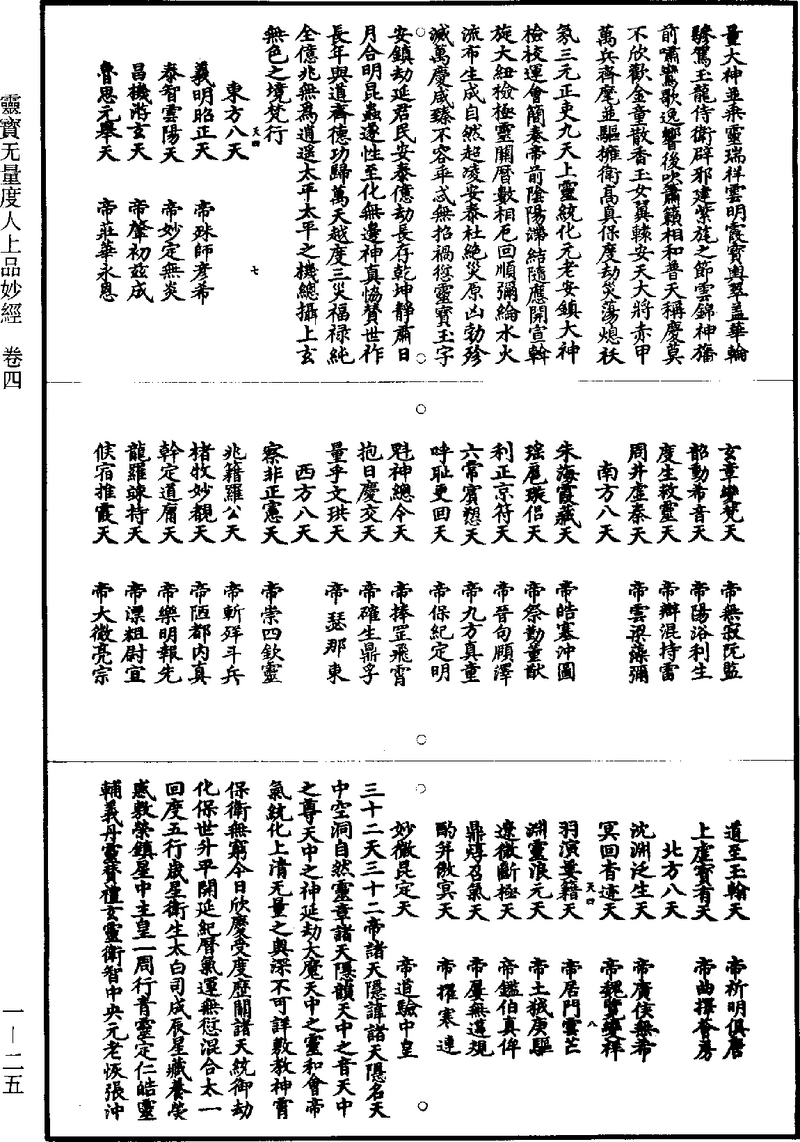 靈寶无量度人上品妙經　卷四
一—二五
量大神並乘靈瑞祥雲明霞寶輿翠蓋華輪
驂駕玉龍侍衛辟邪建紫旄之節雲錦神旛
前嘯鸞歌逸響後吹簫籟相和普天稱慶莫
不欣歡金童散香玉女翼轃安天大將赤甲
萬兵齊麾並驅擁衛高真保度劫災蕩熄祅
氛三元正吏九天上靈統化元老安鎮大神
檢校運會簡奏帝前陰陽滯結隨應開宣斡
旋大紐檢極靈關曆數相启回順彌綸水火
流布生成自然超凌安泰杜絕災原凶勃殄
滅萬慶咸臻不容乖忒無招禍愆靈寶玉字
安鎮劫延君民安泰億劫長存乾坤靜肅日
月合明昆蟲遂性至化無邊神真恊贊世祚
長年與道齊德功歸萬天越度三災福禄純
全億兆無為逍遥太平太平之機總攝上玄
無色之境梵行
東方八天
天四
七
義明昭正天　帝殊師彥希
泰智雲陽天　帝妙定無炎
昌機游玄天　帝肇初兹成
魯思元舉天　帝莊華永恩
玄章變梵天　帝無寂阮監
韶動希音天　帝陽浴利生
度生救靈天　帝辯混持雷
周井虛秦天　帝雲梁藻彌
南方八天
朱海霞藏天　帝皓塞沖圖
瑶扈璨侶天　帝祭勤董猷
利正京符天　帝晉句願澤
六常賓想天　帝九方真童
呼耻更回天　帝保紀定明
魁神總令天　帝捧罡飛霄
抱日慶交天　帝確生鼎孚
量乎文珙天　帝瑟那東
西方八天
察非正憲天　帝崇四欽靈
兆籍羅公天　帝斬殍斗兵
楮牧妙觀天　帝陋都内真
幹定道庸天　帝樂明報先
龍羅竦持天　帝漂粗尉宣
候宿推霞天　帝大微亮宗
道至玉翰天　帝祈明俱唐
上虛寶有天　帝曲擇薈房
北方八天
沈淵泛生天　帝廣佚無希
冥回杳迹天　帝魏覽變祥
天四
八
羽演要籍天　帝居門靈芒
淵靈浪元天　帝土械庚驅
遼微斷極天　帝鑑伯真俾
鼎焞召氣天　帝屢無遠規
酌升散冥天　帝擢寒連
妙微昆定天　帝道驗中皇
三十二天三十二帝諸天隱諱諸天隱名天
中空洞自然靈章諸天隱韻天中之音天中
之尊天中之神延劫大魔天中之靈和會帝
氣統化上清无量之奥深不可詳敷教神霄
保衛無窮今日欣慶受度歷關諸天統御劫
化保世升平開延紀曆氣運無愆混合太一
回度五行歲星衛生太白司成辰星藏養熒
惑敷榮鎮星中主皇一周行青靈定仁皓靈
輔義丹靈贊禮玄靈衛智中央元老恢張沖